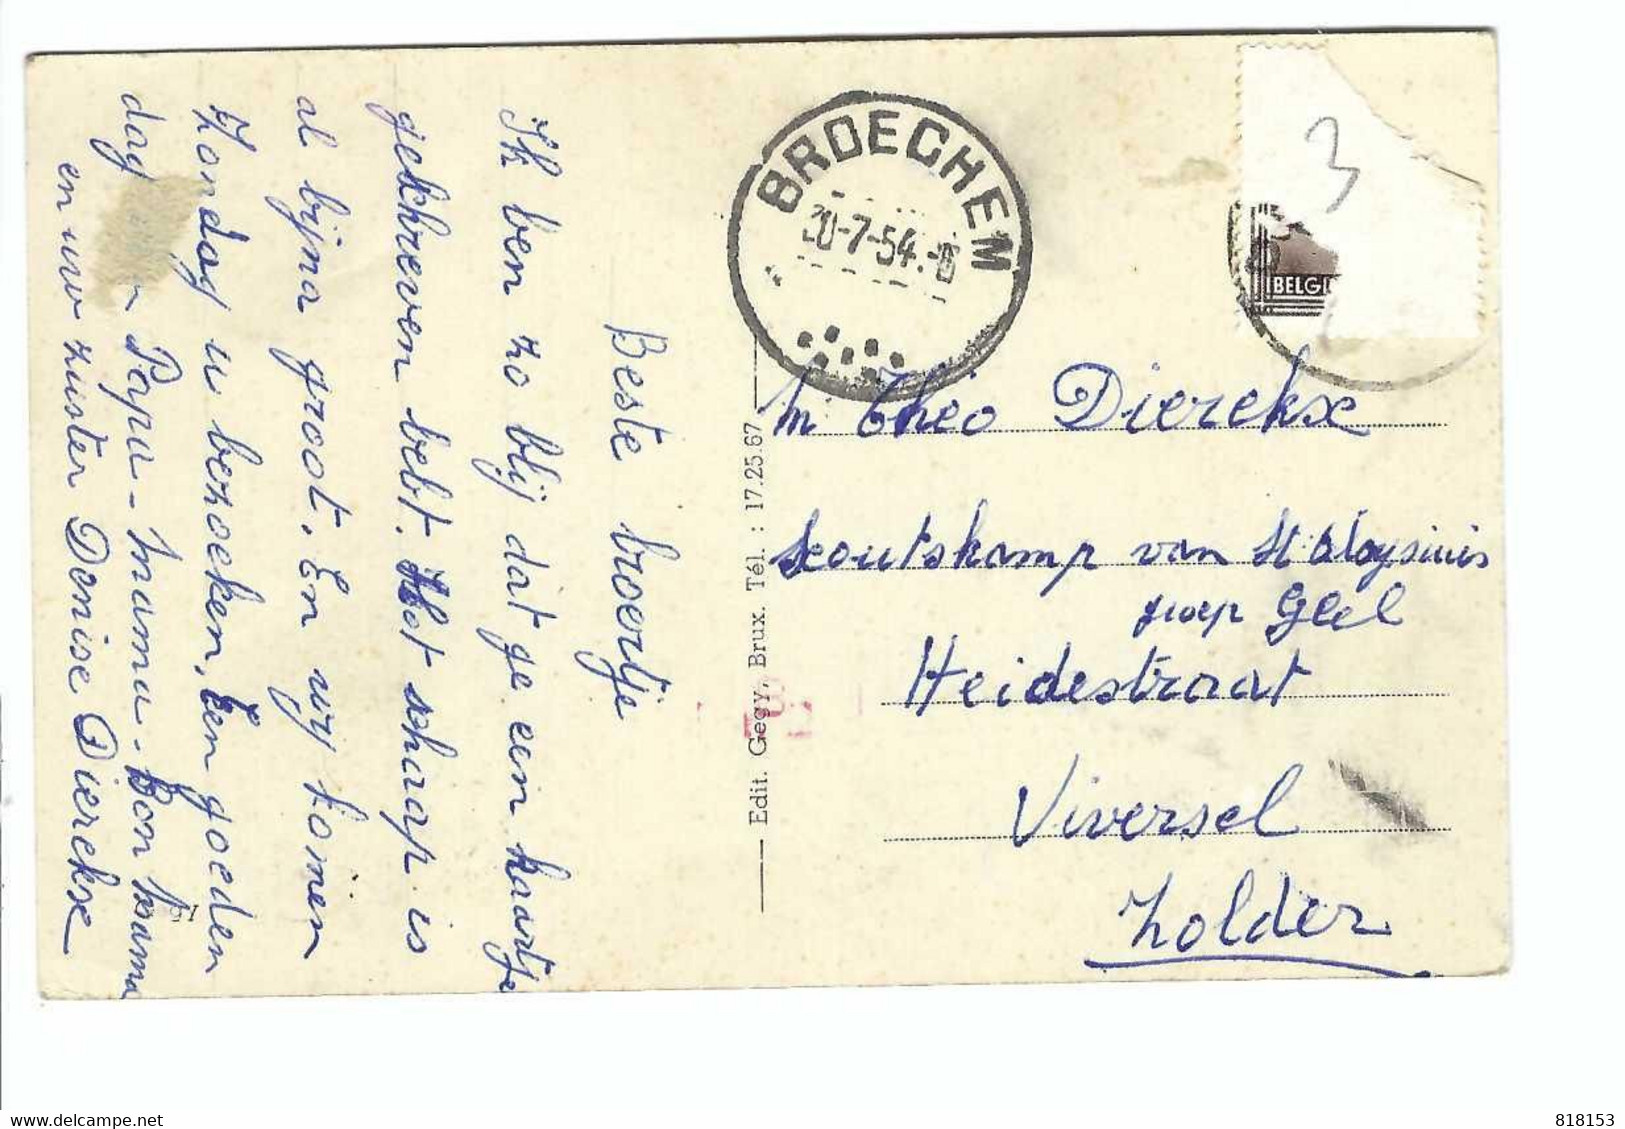 Beste broertje
Ik ben zo blij dat ge een kaartje
geschreven hebt. Het schaap is
al bijna groot. En wij komen
Zondag u bezoeken. Een goeden
dag Papa - Mama - Bon Mama
en uw zuster Denise Dierckse
97
Edit. Gegy, Brux. Tél. : 17.25.67
BROECHEM
20-7-54
3
BELGI
M Théo Dierckse
scoutskamp van St Aloysiuis
groep Geel
Heidestraat
Viversel
Zolder
818153